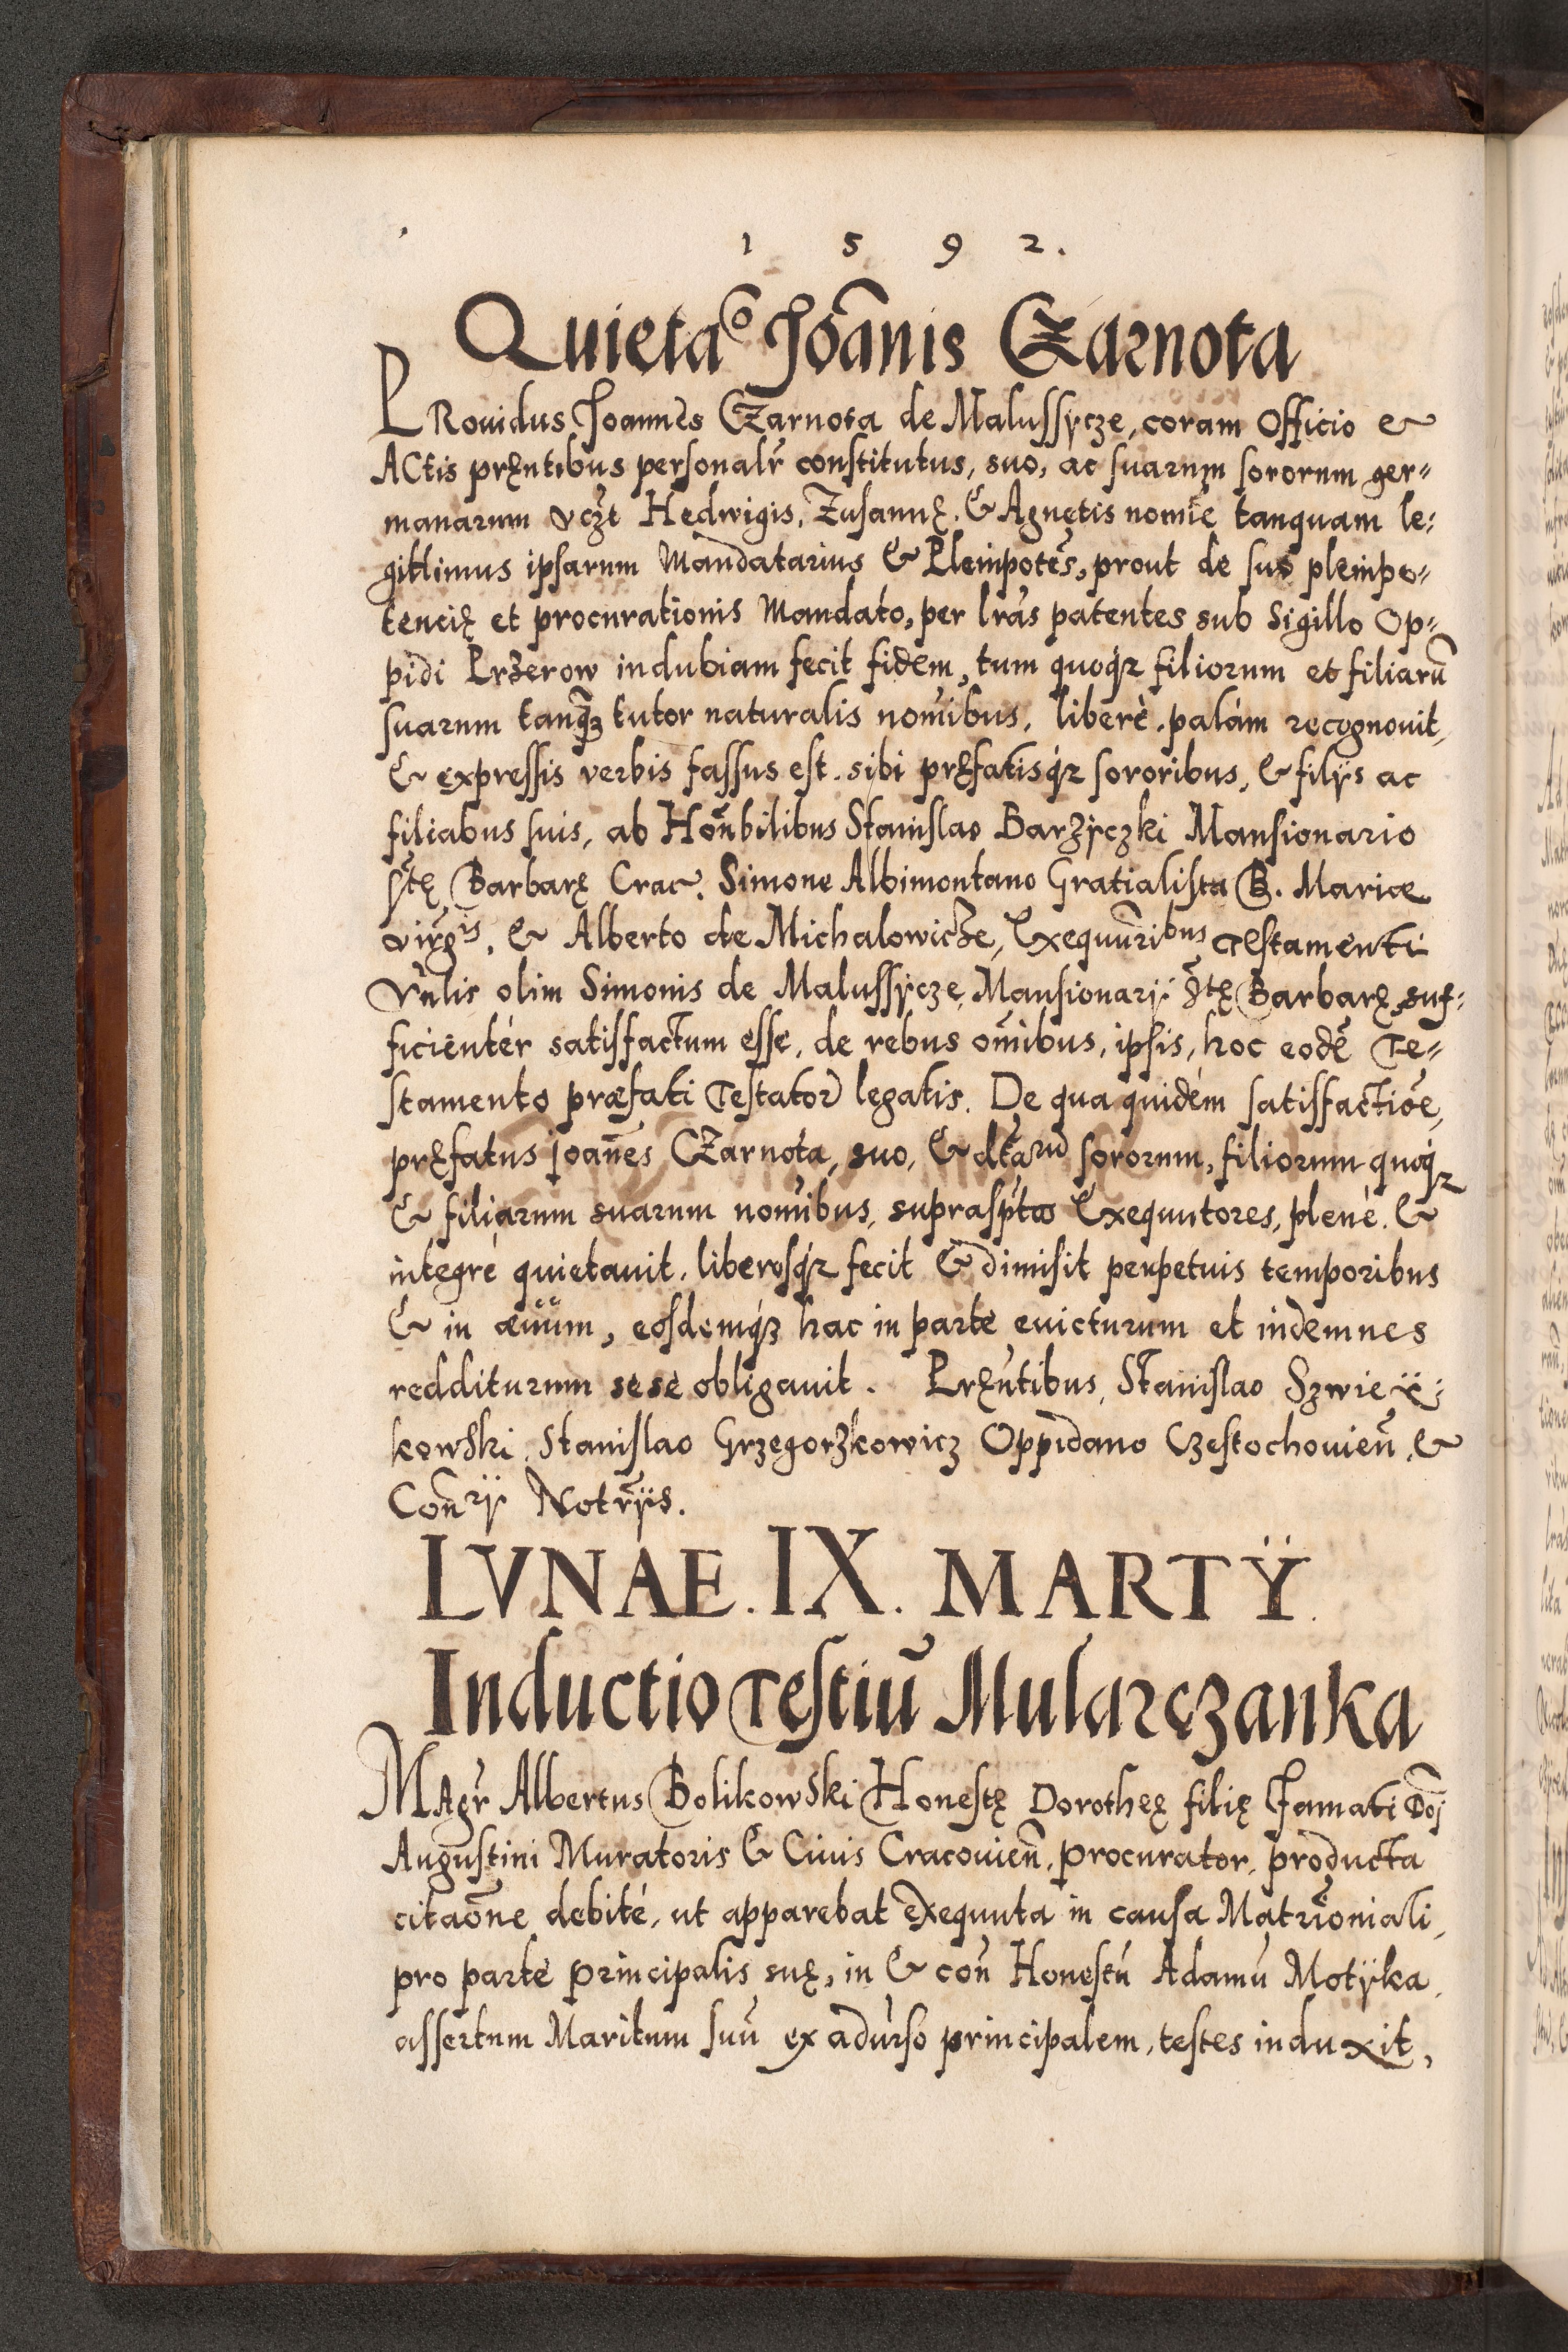 1 5 9 2.
Quietaᵒ Joãnis CZarnota
PRouidus Joannes CZarnota de Malussÿcze, coram Officio &
ACtis pręntibus personalr̃ constitutus, suo, ac suarum sororum ger=
manarum vczt Hedwigis, Zusannę. & Agnetis nomĩe tanquam le:
gittimus ipsarum Mandatarius & Pleinpotẽs, prout de suo pleinpo=
tencię et procurationis Mandato, per lrãs patentes sub Sigillo Op=
pidi PrZerow indubiam fecit fidem, tum quoqʒ filiorum et filiarũ
suarum tanqʒ̃ tutor naturalis nomĩbus, liberè, palám recognouit,
& expressis verbis fassus est. sibi pręfatisqʒ sororibus, & filÿs ac
filiabus suis, ab Honb̃ilibus Stanislao BarZÿczki Mansionario
Stę Barbarę Crac. Simone Albimontano Gratialista B. Mariæ
virgis. & Alberto de MichalowicZe, Exequut̃ribus Testamenti
Vñlis olim Simonis de Malussÿcze, Mansionarÿ Stę Barbarę, suf:
ficientér satisfactum esse, de rebus om̃ibus, ipsis, hoc eodẽ Te=
stamento præfati Testator̃ legatis. De qua quidém satisfactiõe,
pręfatus joañes CZarnota, suo, & dctarũ sororum, filiorum quoqʒ
& filiarum suarum nomĩbus, suprasp̃tos Exequutores, plenè. &
integré quietauit, liberosqʒ fecit & dimisit perpetuis temporibus
& in æuum, eosdemqʒ hac in parte euicturum et indemnes
redditurum sese obligauit. Pręñtibus, Stanislao Szwieÿ:
kowSki, Stanislao GrzegorZkowicz Oppidano Czestochouieñ, &
Coñrÿ Notrÿs.
LVNAE. IX. MARTŸ.
Inductio Testiũ Mularczanka
MAgr̃ Albertus BolikowSki Honestę Dorothęę filię Famati Dõj
Augustini Muratoris & Ciuis Cracouieñ, procurator, producta
citaõne debité, ut apparebat exequuta in causa Matrĩoniali,
pro parte principalis suę, in & coñ Honestũ Adamũ Motÿka,
assertum Maritum suũ ex adũrso principalem, testes induxit,